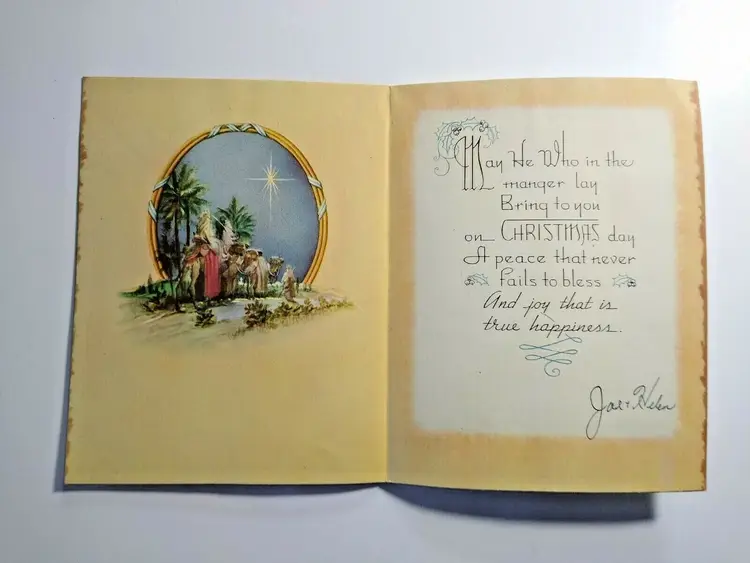 May He Who in the
manger lay
Bring to you
on CHRISTMAS day
A peace that never
fails to bless
And joy that is
true happiness.
Helen